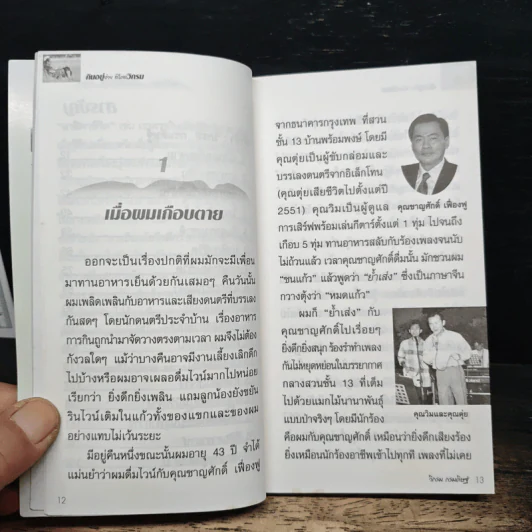 คนอยู่
1
เมื่อผมเกือบตาย
ออกจะเป็นเรื่องปกติที่ผมมักจะมีเพื่อน
มาทานอาหารเย็นด้วยกันเสมอๆ คืนวันนั้น
ผมเพลิดเพลินกับอาหารและเสียงดนตรีที่บรรเลง
กันสดๆ โดยนักดนตรีประจำบ้าน เรื่องอาหาร
การกินถูกนำมาจัดวางตรงตามเวลา ผมจึงไม่ต้อง
กังวลใดๆ แม้ว่าบางคืนอาจมีงานเลี้ยงเลิกดึก
ไปบ้างหรือผมอาจเผลอดื่มไวน์มากไปหน่อย
เรียกว่า ยิ่งดึกยิ่งเพลิน แถมลูกน้องยังขยัน
รินไวน์เติมในแก้วทั้งของแขกและของผม
อย่างแทบไม่เว้นระยะ
มีอยู่คืนหนึ่งขณะนั้นผมอายุ 43 ปี จำได้
แม่นยำว่าผมดื่มไวน์กับคุณชาญศักดิ์ เฟื่องฟู
12
จากธนาคารกรุงเทพ ที่สวน
ชั้น 13 บ้านพร้อมพงษ์ โดยมี
คุณตุ่ยเป็นผู้ขับกล่อมและ
บรรเลงดนตรีจากอิเล็กโทน
(คุณตุ่ยเสียชีวิตไปตั้งแต่ปี
2551) คุณวิมเป็นผู้ดูแล
คุณชาญศักดิ์ เฟื่องฟู
การเสิร์ฟพร้อมเล่นกีตาร์ตั้งแต่ 1 ทุ่ม ไปจนถึง
เกือบ 5 ทุ่ม ทานอาหารสลับกับร้องเพลงจนนับ
ไม่ถ้วนแล้ว เวลาคุณชาญศักดิ์ดื่มนั้น มักชวนผม
"ชนแก้ว" แล้วพูดว่า "ย้ำเส่ง" ซึ่งเป็นภาษาจีน
กวางตุ้งว่า "หมดแก้ว"
ผมก็ "ย้ำเส่ง" กับ
คุณชาญศักดิ์ไปเรื่อยๆ
ยิ่งดึกยิ่งสนุก ร้องรำทำเพลง
กันไม่หยุดหย่อนในบรรยากาศ
กลางสวนชั้น 13 ที่เต็ม
ไปด้วยแมกไม้นานาพันธุ์
แบบป่าจริงๆ โดยมีนักร้อง
คุณวิมและคุณตุ่ย
คือผมกับคุณชาญศักดิ์ เหมือนว่ายิ่งดึกเสียงร้อง
ยิ่งเหมือนนักร้องอาชีพเข้าไปทุกที เพลงที่ไม่เคย
วิกรม กรมดิษฐ์ 13